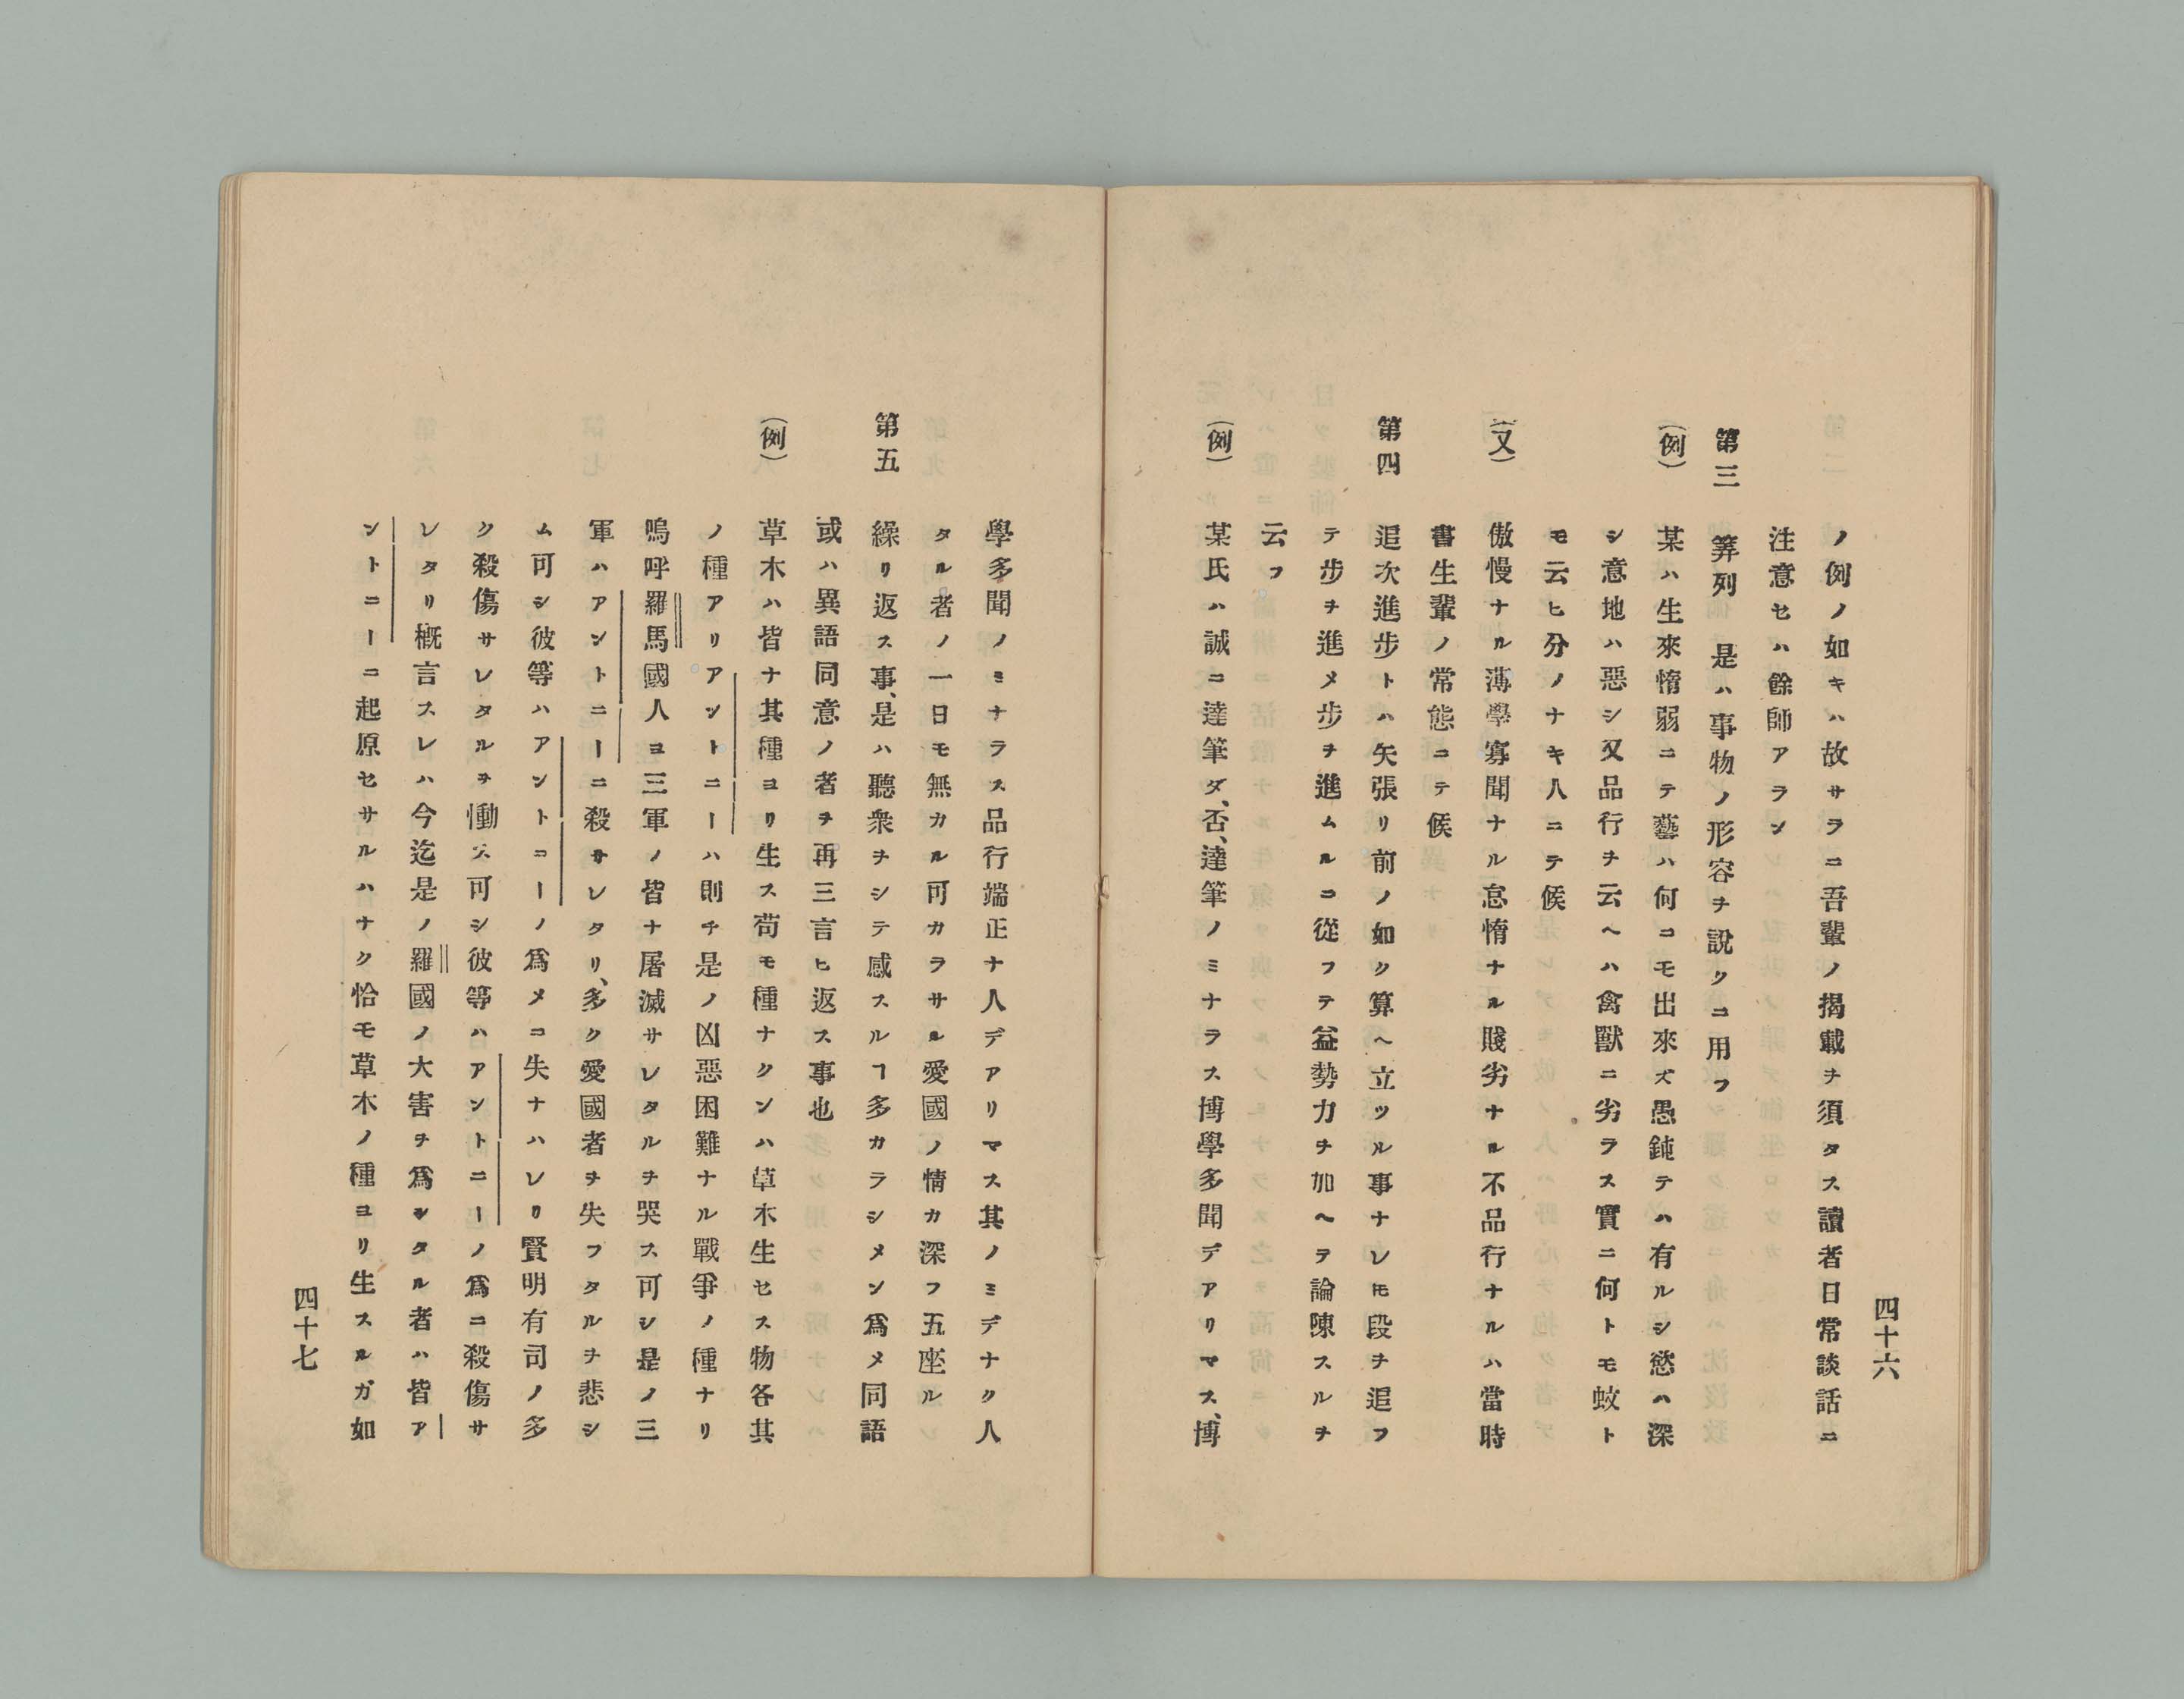 ノ例ノ如キハ故サラニ吾輩ノ揭載ヲ須タス讀者日常談話ニ
注意セハ餘師アラン
第三 筭列 是ハ事物ノ形容ヲ說クニ用フ
(例) 某ハ生來惰弱ニテ藝ハ何コモ出來ズ愚鈍テハ有ルシ慾ハ深
シ意地ハ惡シ又品行ヲ云ヘハ禽獸ニ劣ラス實ニ何トモ蚊ト
モ云ヒ分ノナキ人ニテ候
(又) 傲慢ナル薄學寡聞ナル怠惰ナル賤劣ナル不品行ナルハ當時
書生輩ノ常態ニテ候
第四 追次進步トハ矢張リ前ノ如ク算ヘ立ツル事ナレ𪜈段ヲ追フ
テ步ヲ進メ步ヲ進ムルコ從フテ益勢力ヲ加ヘヲ論陳スルヲ
云フ
(例) 某氏ハ誠ニ達筆ダ、否、達筆ノミナラス博學多聞デアリマス、博
四十六
學多聞ノミナラス品行端正ナ人デアリマス其ノミデナク人
タル者ノ一日モ無カル可カラサル愛國ノ情カ深フ五座ル
第五 繰リ返ス事、是ハ聽衆ヲシテ感スルヿ多カラシメン爲メ同語
或ハ異語同意ノ者ヲ再三言ヒ返ス事也
(例) 草木ハ皆ナ其種ヨリ生ス苟モ種ナクンハ草木生セス物各其
ノ種アリアントニーハ則チ是ノ凶惡困難ナル戰爭ノ種ナリ
嗚呼羅馬國人ヨ三軍ノ皆ナ屠滅サレタルヲ哭ス可シ是ノ三
軍ハアントニーニ殺サレタリ、多ク愛國者ヲ失フタルヲ悲シ
ム可シ彼等ハアントコーノ爲メコ失ナハレリ賢明有司ノ多
ク殺傷サレタルヲ慟ス可シ彼等ハアントニーノ爲ニ殺傷サ
レタリ槪言スレハ今迄是ノ羅國ノ大害ヲ爲シタル者ハ皆ア
ントニーニ起原セサルハナク恰モ草木ノ種ヨリ生スルガ如
四十七